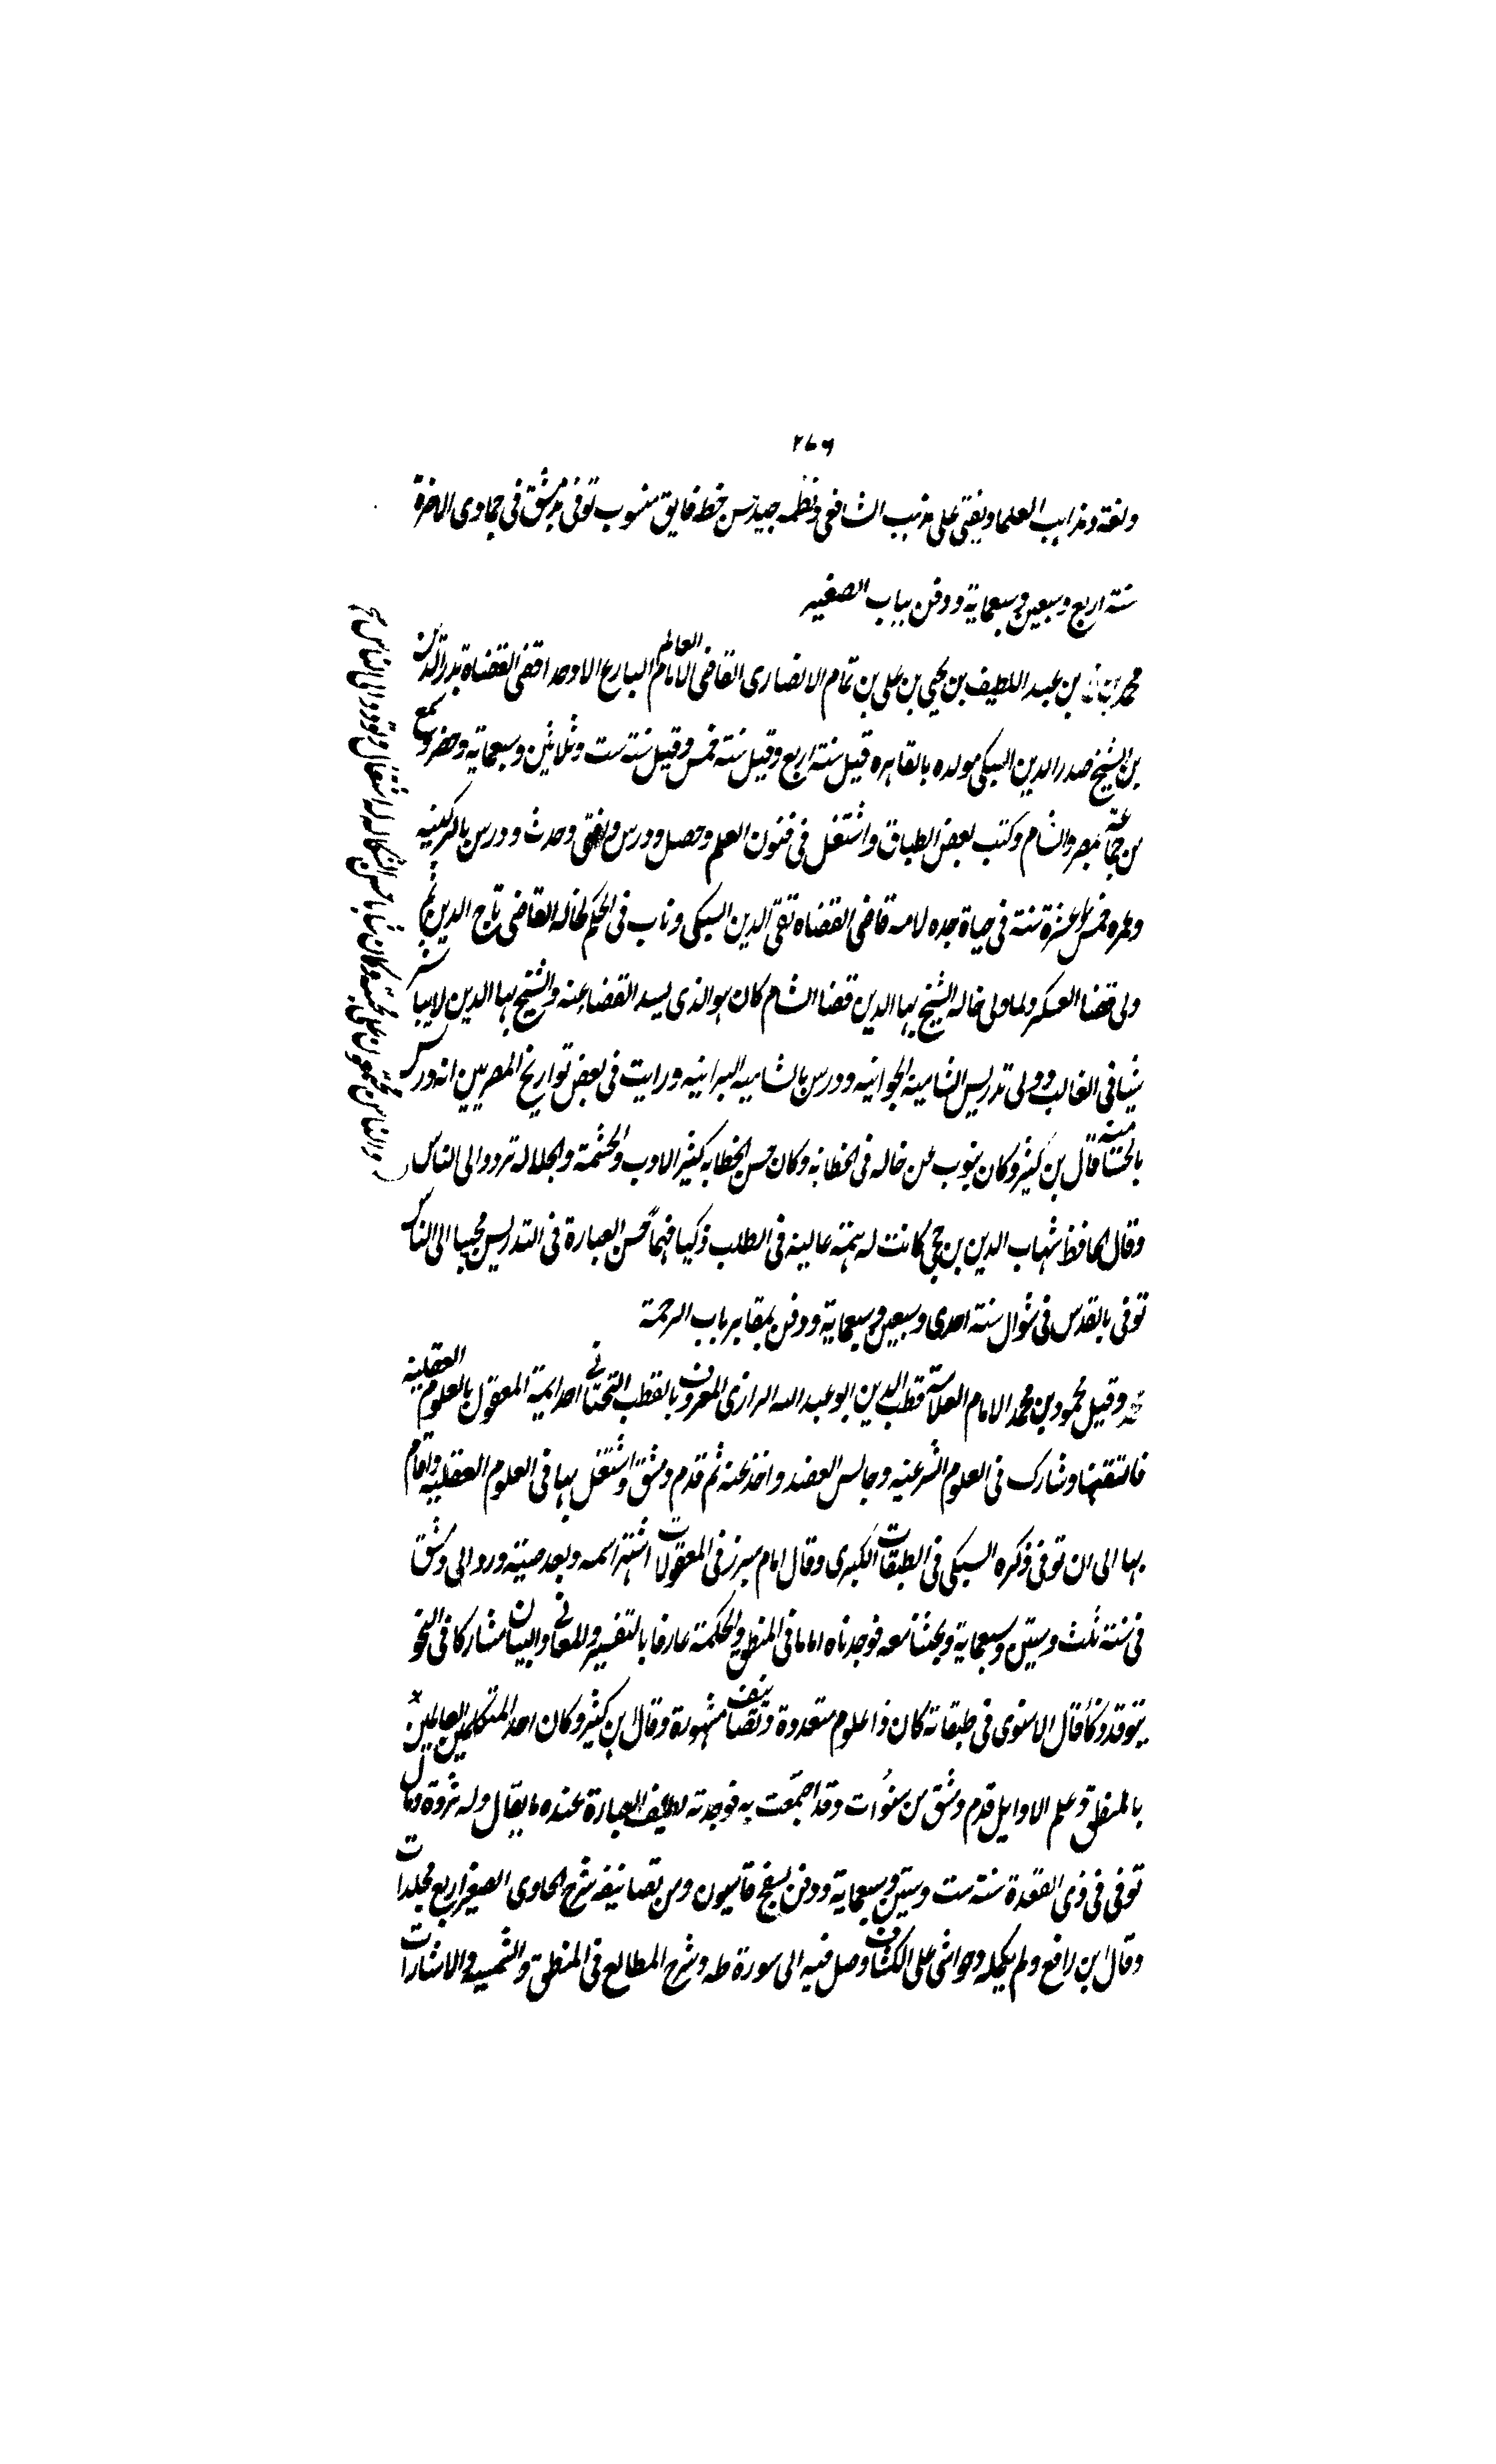 ٢٧٦
ولغة ومذاهب العلما ويفتى على مذهب الشافعى ونظمه جيد حسن خطه فايق منسوب توفى بدمشق فى جمادى الاخرة
سنة اربع وسبعين وسبعماية ودفن بباب الصغير
محمد بن عبد اللطيف بن يحيى بن على بن تمام الانصارى القاضى الامام العالم البارع الاوحد اقضى القضاة بدر الدين
بن الشيخ صدر الدين السبكى مولده بالقاهره قيل سنة اربع وقيل سنة خمس وقيل سنة ست وثلاثين وسبعماية وحضر وسمع
من جماعة بمصر والشام وكتب بعض الطباق واشتغل فى فنون العلم وحصل ودرس وافتى وحدث ودرس بالركنيه
وعمره خمس عشرة سنة فى حياة جده لامه قاضى القضاة تقى الدين السبكى وناب فى الحكم لخاله القاضى تاج الدين ثم
ولى قضا العسكر ولما ولى خاله الشيخ بها الدين قضا الشام كان هو الذى يسد القضا عنه والشيخ بها الدين لا يباشر
شيا فى الغالب وولى تدريس الشامية الجوانيه ودرس بالشاميه البرانيه ورايت فى بعض تواريخ المصريين انه درس
قال بن كثير وكان ينوب عن خاله فى الخطابة وكان حسن الخطابه كثير الادب والحشمة والجلاله تردد الى الناس
والناس مجتمعون على محبته وكان شابا حسن الشكاله له اشتغال
وقال الحافظ شهاب الدين بن حجى كانت له همة عالية فى الطلب ذكيا فهما حسن العبارة فى التدريس محببا الى الناس
توفى بالقدس فى شوال سنة احدى وسبعين وسبعماية ودفن بمقابر باب الرحمة
محمد وقيل محمود بن محمد الامام العلامة قطب الدين ابو عبد الله الرازى المعروف بالقطب التحتانى احد ايمة المعقول بالعلوم العقلية
فاتقنها وشارك فى العلوم الشرعيه وجالس العضد واخذ عنه ثم قدم دمشق واشتغل بها فى العلوم العقليه واقام
بها الى ان توفى ذكره السبكى فى الطبقات الكبرى وقال امام مبرز فى المعقولات اشتهر اسمه وبعد صيته ورد الى دمشق
فى سنة ثلث وستين وسبعماية وبحثنا معه فوجدناه اماما فى المنطق والحكمة عارفا بالتفسير والمعانى والبيان مشاركا فى النحو
يتوقد ذكأ قال الاسنوى فى طبقاته كان ذا علوم متعددة وتصانيف مشهورة وقال ابن كثير وكان احد المتكلمين العالمين
بالمنطق وعلم الاوايل قدم دمشق من سنوات وقد اجتمعت به فوجدته لطيف العبارة عنده ما يقال وله ثروة ومال
توفى فى ذى القعدة سنة ست وستين وسبعماية ودفن بسفح قاسيون ومن تصانيفه شرح الحاوى الصغير اربع مجلدات
وقال ابن رافع ولم يكمله وحواشى على الكشاف وصل فيه الى سورة طه وشرح المطالع فى المنطق والشمسيه والاشارات